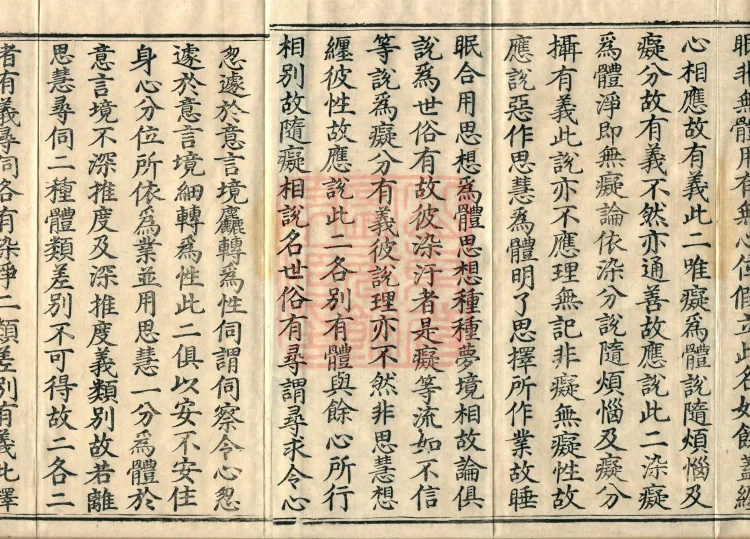 眠非無體用有無心位假立此名如餘蓋纏
心相應故有義此二唯癡爲體說隨煩惱及
癡分故有義不然亦通善故應說此二染癡
爲體淨即無癡論依染分說隨煩惱及癡分
攝有義此說亦不應理無記非癡無癡性故
應說惡作思慧爲體明了思擇所作業故睡
眠合用思想爲體思想種種夢境相故論俱
說爲世俗有故彼染汙者是癡等流如不信
等說爲癡分有義彼說理亦不然非思慧想
纏彼性故應說此二各別有體與餘心所行
相別故隨癡相說名世俗有尋謂尋求令心
怱遽於意言境麤轉爲性伺謂伺察令心怱
遽於意言境細轉爲性此二俱以安不安住
身心分位所依爲業並用思慧一分爲體於
意言境不深推度及深推度義類別故若離
思慧尋伺二種體類差別不可得故二各二
者有義尋伺各有染淨二類差別有義此釋